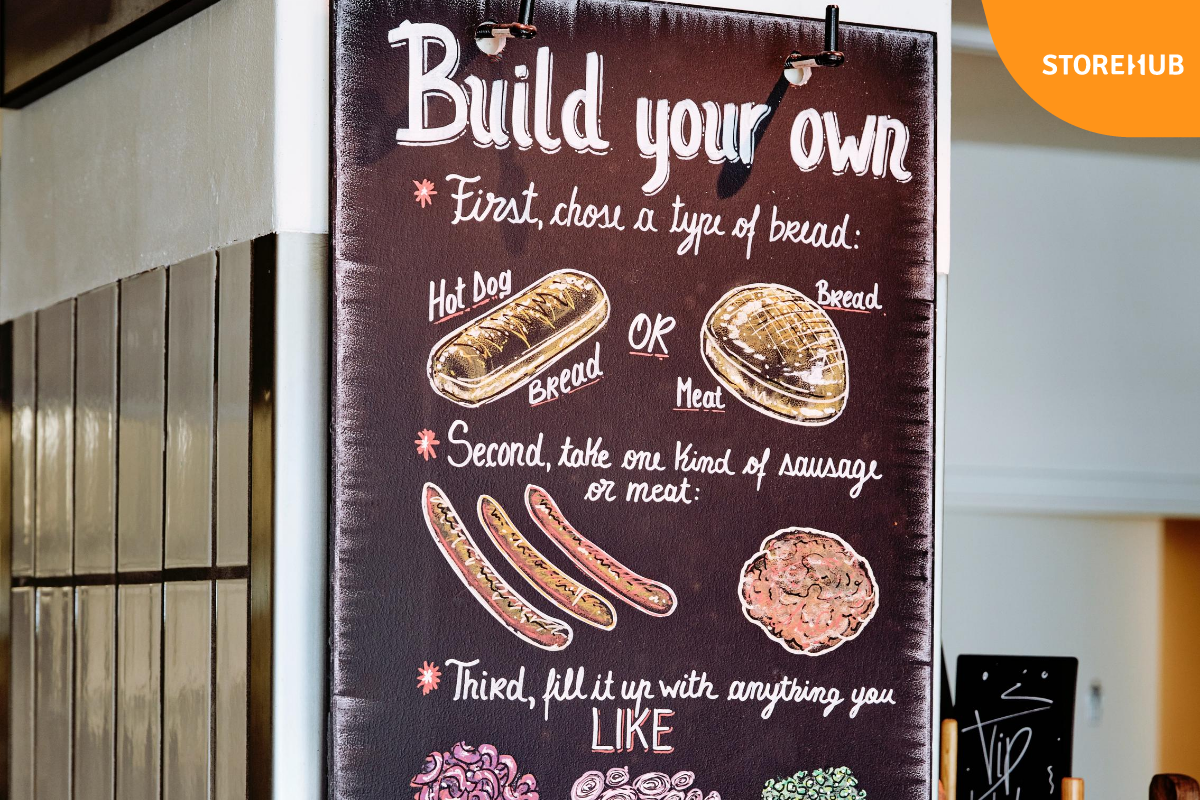 STOREHUB
Build your own
* First, chose a type of bread:
Hot Dog
Bread
OR
Bread
Meat
* Second, take one kind of sausage
or meat:
* Third, fill it up with anything you
LIKE
Tip